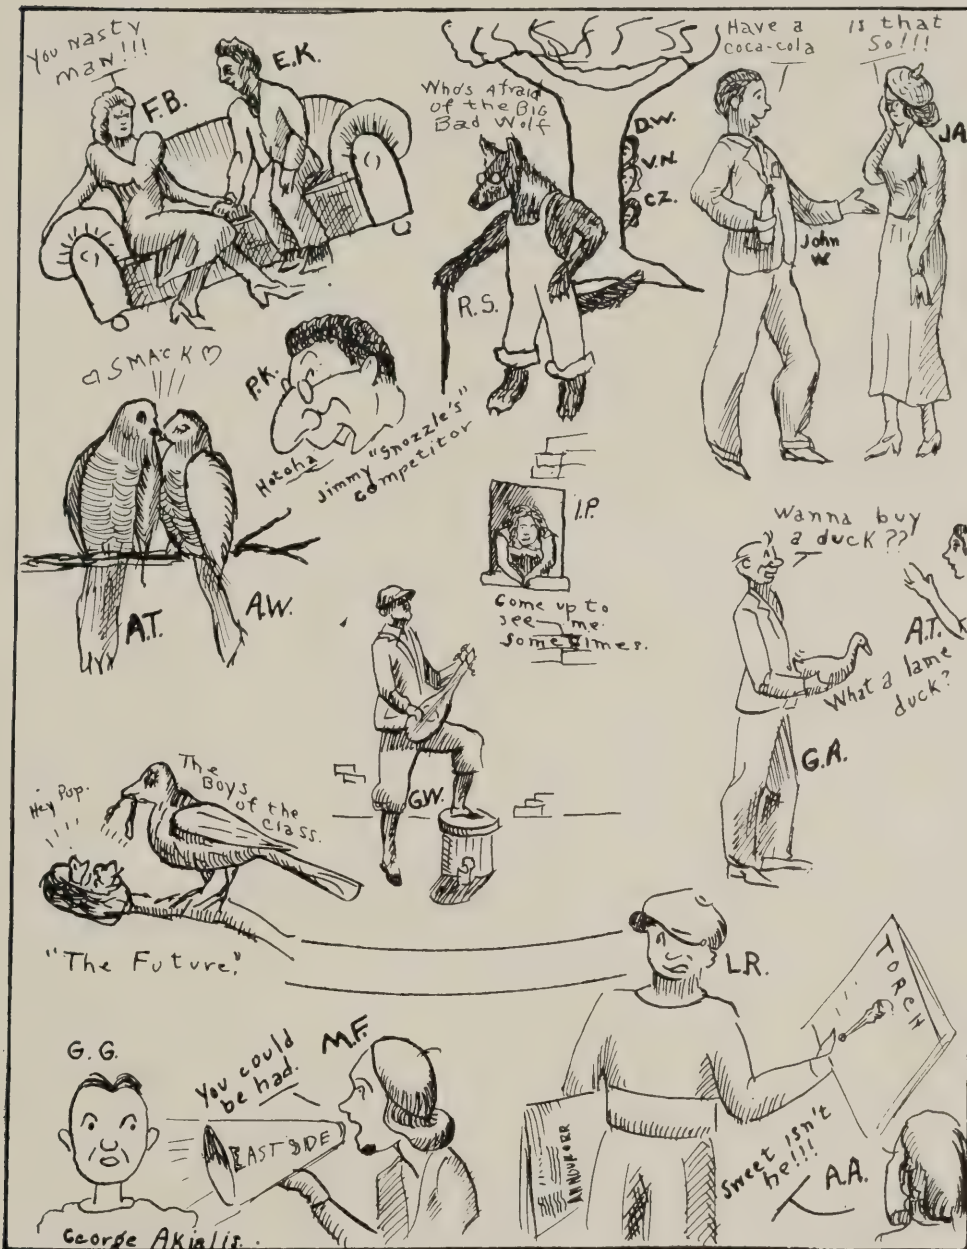 You Nasty
man!!!
F.B.
E.K.
Who's Afraid
of the Big
Bad Wolf
D.W.
V.N.
C.Z.
R.S.
Have a
coca-cola
is that
So!!!
J.A.
John
W.
SMACK
P.K.
Hotcha
Jimmy "Snozzle's"
competitor
A.T.
A.W.
I.P.
Come up to
see me
sometimes.
Wanna buy
a duck??
A.T.
What a lame
duck?
G.R.
G.W.
Hey Pop.
The
Boys
of the
Class.
"The Future."
L.R.
TORCH
G.G.
You could
be had.
M.F.
EAST SIDE
ANNOUNCER
Sweet isn't
he!!!
A.A.
George Akialis.